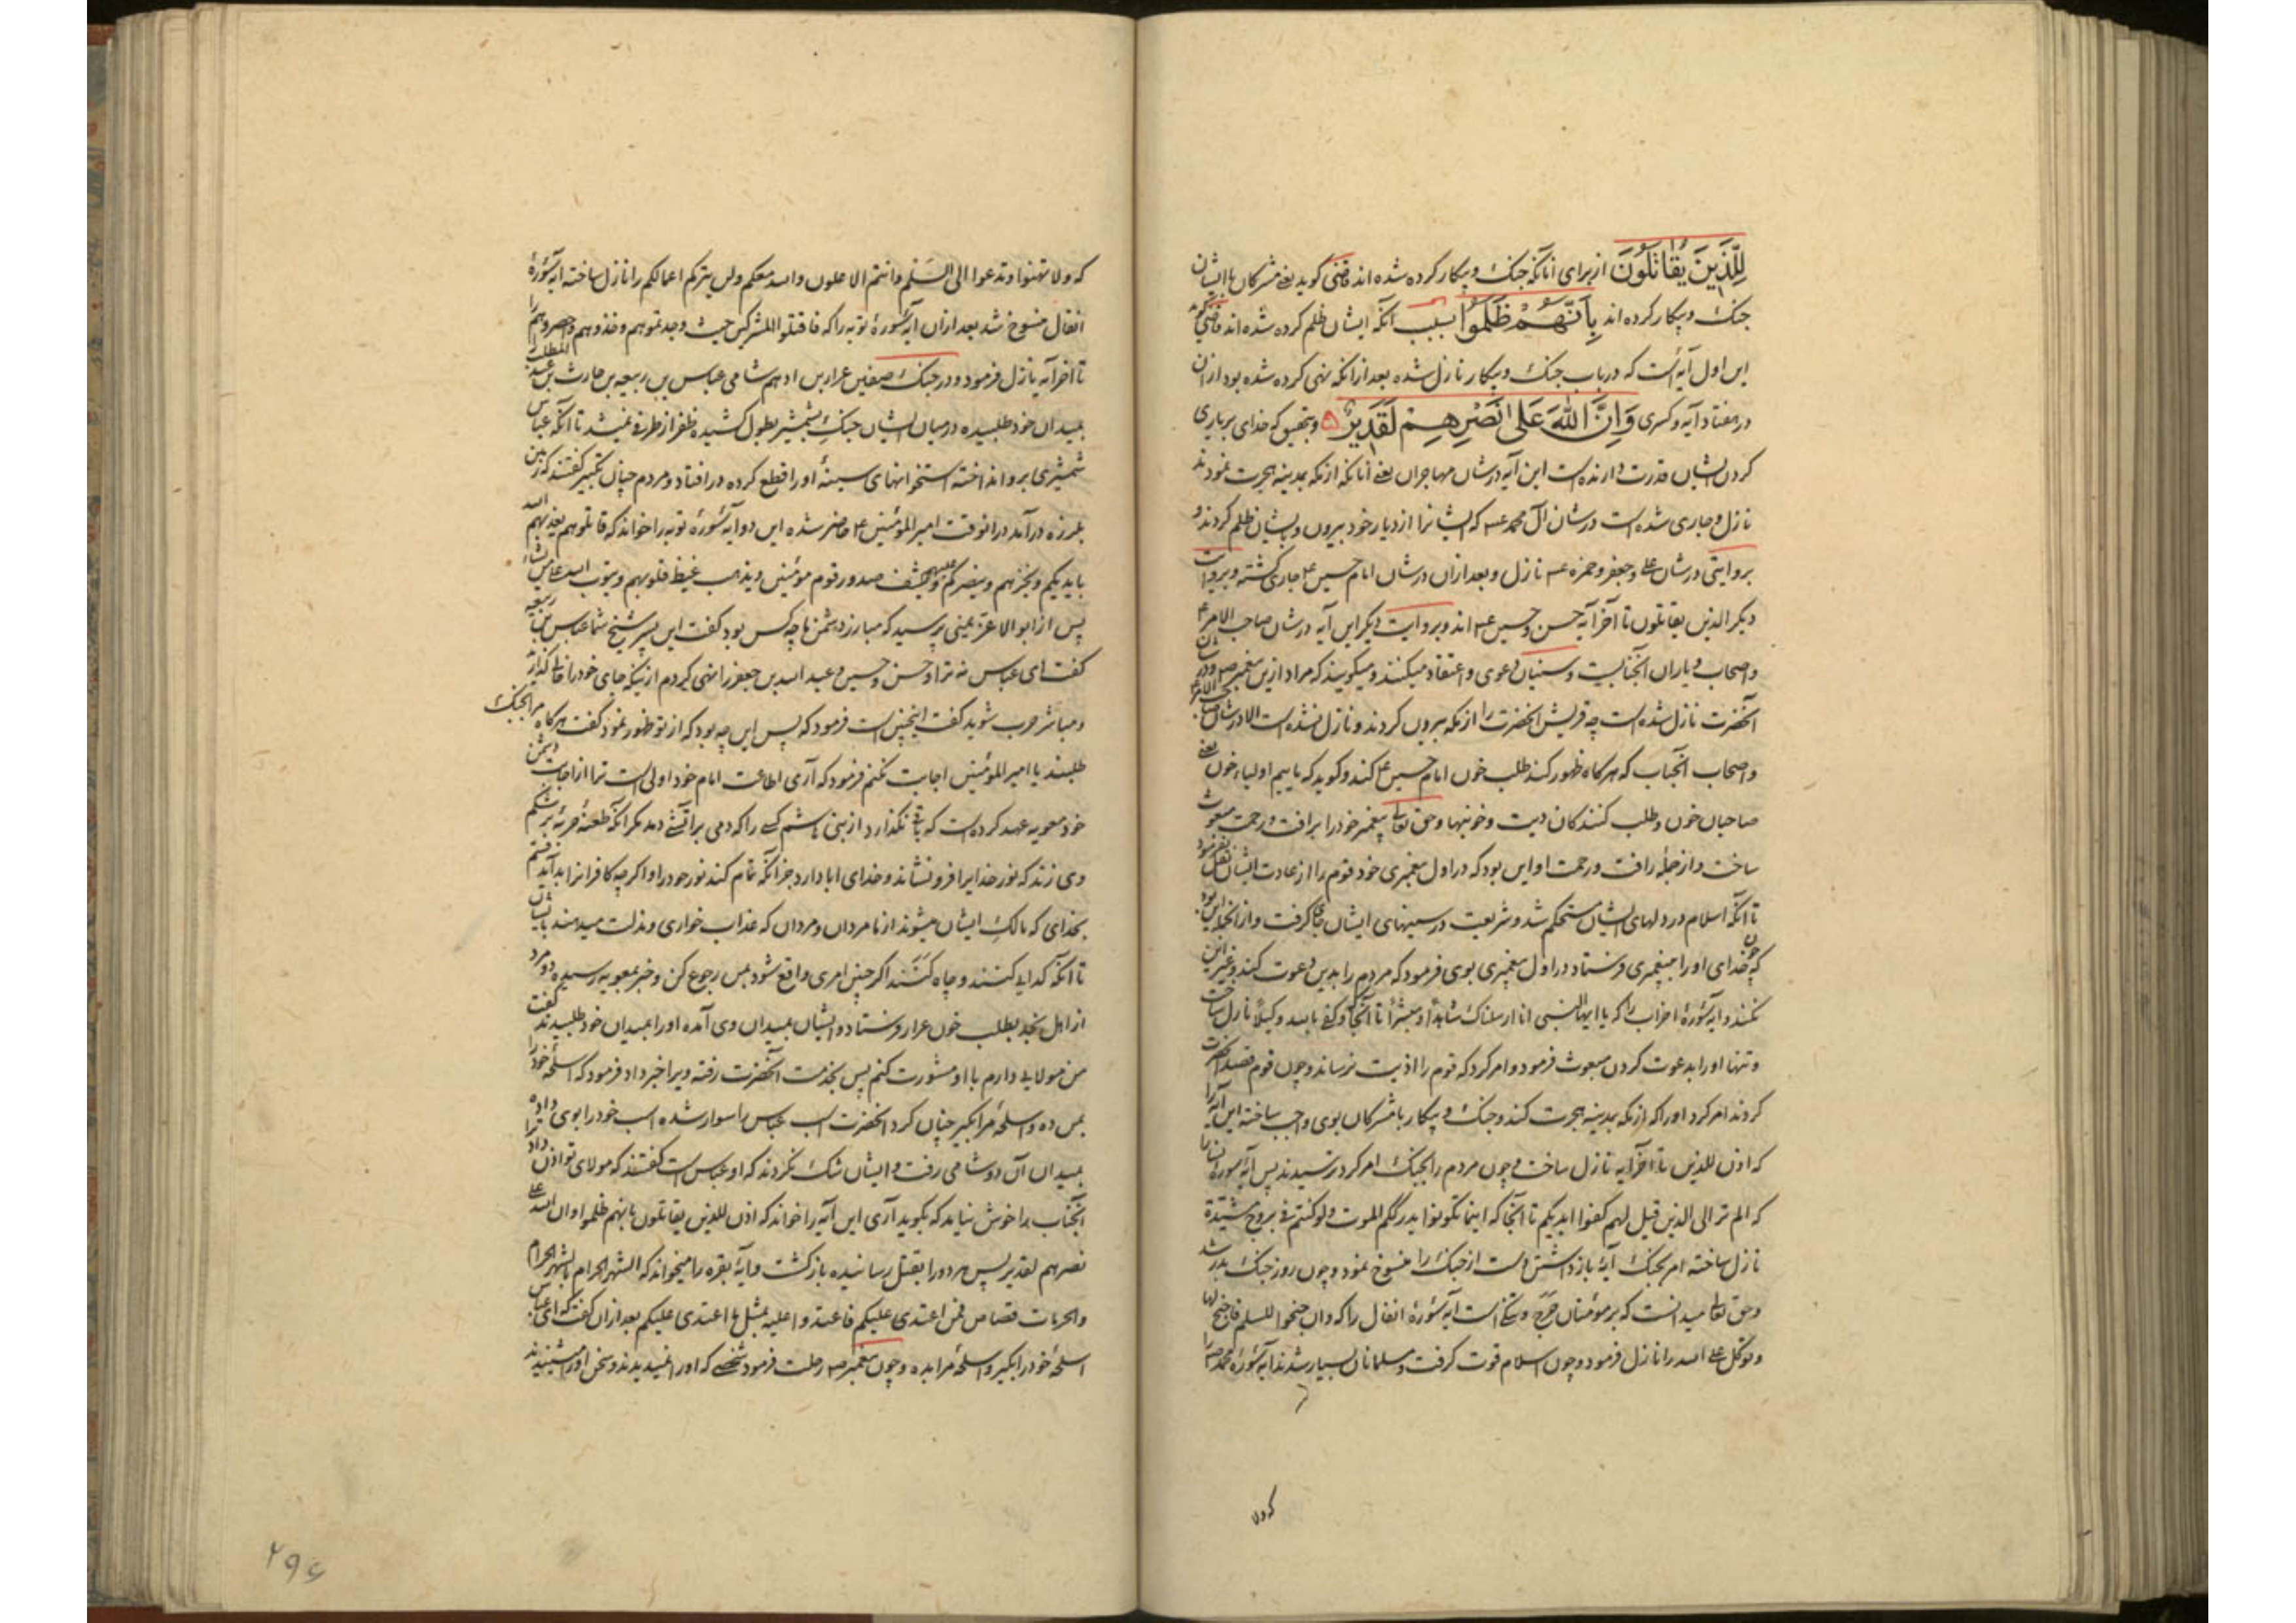 لِلَّذِينَ يُقَاتَلُونَ از برای آنانکه جنک و پیکار کرده شده اند قاضی کوید یعنی مشرکان با ایشان
جنک و پیکار کرده اند بِأَنَّهُمْ ظُلِمُوا بسبب آنکه ایشان ظلم کرده شده اند قاضی کوید
این اول آیه است که در باب جنک و پیکار نازل شده بعد از آنکه نهی کرده شده بود از آن
در هفتاد آیه و کسری وَإِنَّ اللَّهَ عَلَى نَصْرِهِمْ لَقَدِيرٌ و بتحقیق که خدای بر یاری
کردن ایشان قدرت دارنده است این آیه در شان مهاجران یعنی آنانکه از مکه بمدینه هجرت نمودند
نازل و جاری شده است در شان آل محمد ع که ایشانرا از دیار خود بیرون و بایشان ظلم کردند و
بروایتی در شان علی و جعفر و حمزه ع نازل و بعد از آن در شان امام حسین ع جاری کشته و بروایت
دیکر الذین یقاتلون تا آخر آیه حسن و حسین ع اند و بروایت دیکر این آیه در شان صاحب الامر ع
و اصحاب و یاران آنجنابست و سنیان دعوی و اعتقاد میکنند و میکویند که مراد ازین پیغمبر ص و در شان
آنحضرت نازل شده است چه قریش آنحضرت را از مکه بیرون کردند و نازل نشده است الا در شان صاحب الامر ع
و اصحاب آنجناب که هرکاه ظهور کند طلب خون امام حسین ع کند و کوید که ماییم اولیاء خون یعنی
صاحبان خون و طلب کنندکان دیت و خونبها و حق تعالی پیغمبر خود را برافت و رحمت مبعوث
ساخت و از جمله رافت و رحمت او این بود که در اول پیغمبری خود قوم را از عادت ایشان نقل نفرمود
تا آنکه اسلام در دلهای ایشان مستحکم شد و شریعت در سینهای ایشان جا گرفت و از آنجمله این بود
که چون خدای او را بپیغمبری فرستاد در اول پیغمبری بوی فرمود که مردم را بدین دعوت کند و غیر این
نکند و آیه سورهٔ احزاب را که یا ایها النبی انا ارسلناک شاهداً و مبشراً تا آنجا که و کفی بالله وکیلاً نازل ساخت
و تنها او را بدعوت کردن مبعوث فرمود و امر کرد که قوم را اذیت نرساند و چون قوم قصد آنحضرت
کردند امر کرد او را که از مکه بمدینه هجرت کند و جنک و پیکار با مشرکان بوی واجب ساخته این آیه را
که اذن للذین تا آخر آیه نازل ساخت و چون مردم را بجنک امر کرد ترسیدند پس آیه سورهٔ نسا را
که الم تر الی الذین قیل لهم کفوا ایدیکم تا آنجا که اینما تکونوا یدرککم الموت و لو کنتم فی بروج مشیدة
نازل ساخته امر بجنک آیهٔ بازداشتن دست از جنک را منسوخ نمود و چون روز جنک بدر شد
و حق تعالی میدانست که بر مؤمنان حرج و تنکی است آیه سورهٔ انفال را که و ان جنحوا للسلم فاجنح لها
و توکل علی الله را نازل فرمود و چون اسلام قوت کرفت و مسلمانان بسیار شدند آیه سورهٔ محمد ص را
که ولا
که ولا تهنوا و تدعوا الی السلم و انتم الاعلون و الله معکم و لن یترکم اعمالکم را نازل ساخته آیه سورهٔ
انفال منسوخ شد بعد از آن آیه سورهٔ توبه را که فاقتلوا المشرکین حیث وجدتموهم و خذوهم و احصروهم را
تا آخر آیه نازل فرمود و در جنک صفین عرار بن ادهم شامی عباس بن ربیعه بن حارث بن عبد المطلب
بمیدان خود طلبیده در میان ایشان جنک بشمشیر بطول کشیده ظفر از طرفی نمیشد تا آنکه عباس
شمشیری برو انداخته استخوانهای سینهٔ او را قطع کرده در افتاد و مردم چنان تکبیر کفتند که زمین
بلرزه در آمد در آنوقت امیر المؤمنین ع حاضر شده این دو آیه سورهٔ توبه را خواند که قاتلوهم یعذبهم الله
بایدیکم و یخزهم و ینصرکم علیهم و یشف صدور قوم مؤمنین و یذهب غیظ قلوبهم و یتوب الله علی من یشاء
پس از ابو الاعز یمنی پرسید که مبارز دشمن ما چه کس بود کفت این پسر شیخ شما عباس بن ربیعه
کفت ای عباس نه ترا و حسن و حسین و عبد الله بن جعفر را نهی کردم از اینکه جای خود را خالی کذارند
و مباشر حرب شوید کفت اینچنین است فرمود که پس این چه بود که از تو ظهور نمود کفت هرکاه مرا بجنک
طلبند یا امیر المؤمنین اجابت نکنم فرمود که آری اطاعت امام خود اولی است ترا از اجابت دشمن
خود معویه عهد کرده است که باقی نکذارد از بنی هاشم کسی را که دمی بر آتشی دمد مکر آنکه طعنهٔ حربهٔ بر شکم
وی زند که نور خدا را فرو نشاند و خدای ابا دارد جز آنکه تمام کند نور خود را و اکرچه کافرانرا بد آید قسم
بخدای که مالک ایشان میشوند از ما مردان و مردان که عذاب خواری و مذلت میدهند بایشان
تا آنکه کدایی کنند و چاه کَنَند اکر چنین امری واقع شود بمن رجوع کن و خبر بمعویه رسیده دو مرد
از اهل نجد بطلب خون عرار فرستاد و ایشان بمیدان وی آمده او را بمیدان خود طلبیدند کفت
من مولایی دارم با او مشورت کنم پس بخدمت آنحضرت رفته ویرا خبر داد فرمود که اسلحهٔ خود را
بمن ده و اسلحهٔ مرا بکیر چنان کرد آنحضرت اسب عباس را سوار شده اسب خود را بوی داده
بمیدان آن دو شامی رفت و ایشان شک نکردند که او عباس است کفتند که مولای تو اذن داد ترا
آنجناب را خوش نیامد که بکوید آری این آیه را خواند که اذن للذین یقاتلون بانهم ظلموا و ان الله علی
نصرهم لقدیر پس هر دو را بقتل رسانیده بازکشت و آیهٔ بقره را میخواند که الشهر الحرام بالشهر الحرام
و الحرمات قصاص فمن اعتدی علیکم فاعتدوا علیه بمثل ما اعتدی علیکم بعد از آن کفت که ای عباس
اسلحهٔ خود را بکیر و اسلحهٔ مرا بده و چون پیغمبر ص رحلت فرمود شخصی که او را نمیدیدند و سخن او را میشنیدند
۲۹۶